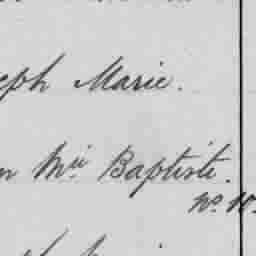 eph Marie.
n Mie Baptiste.
No. 10